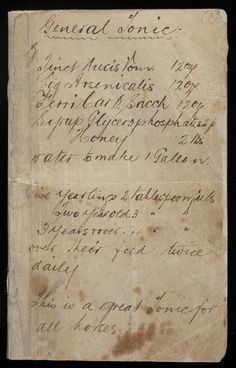 (1)
General Tonic:-
Tinct Nucis Vom 12oz
Liq Arsenicalis 12oz
Ferri Carb Sacch 12oz
Syrup Glycerophosphates
Honey 2 lbs
water to make 1 Galeon.
Give yearlings 2 tablespoonfulls
Two year old 3 " "
3 Years & over " "
over their feed twice
daily
This is a great Tonic for
all horses